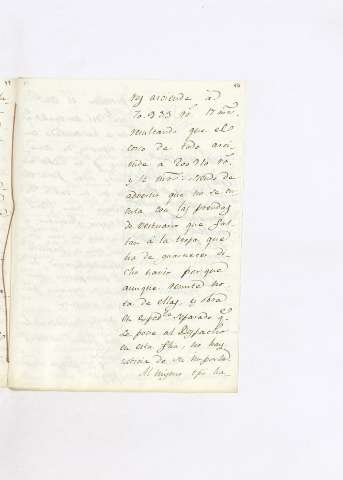 ney asciende á
70.933 rs. 17 mrs.
resultando que el
coso de todo asci
ende a 200.910 rs.
y 12 mrs: siendo de
advertir que no se cu
enta con las prendas
de vestuario que fal
tan á la tropa que
ha de guarnecer di
cho navio porque
aunque remite no
ta de ellas, y obra
en exped.te separado q.e
se pone al Despacho
en esta fha, no hay
noticia de su importe
Al mismo tpo ha